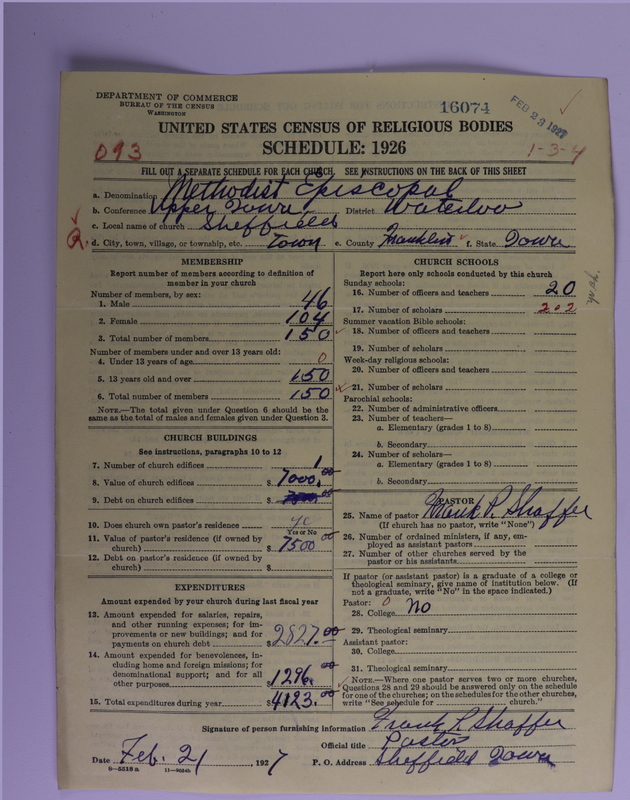 DEPARTMENT OF COMMERCE
BUREAU OF THE CENSUS
WASHINGTON
16074
FEB 23 1927
UNITED STATES CENSUS OF RELIGIOUS BODIES
SCHEDULE: 1926
093
1-3-4
FILL OUT A SEPARATE SCHEDULE FOR EACH CHURCH. SEE INSTRUCTIONS ON THE BACK OF THIS SHEET
a. Denomination Methodist Episcopal
b. Conference Upper Iowa District Waterloo
c. Local name of church Sheffield
d. City, town, village, or township, etc. Town e. County Franklin f. State Iowa
MEMBERSHIP
Report number of members according to definition of
member in your church
Number of members, by sex:
1. Male 46
2. Female 104
3. Total number of members 150
Number of members under and over 13 years old:
4. Under 13 years of age 0
5. 13 years old and over 150
6. Total number of members 150
NOTE.—The total given under Question 6 should be
same as the total of males and females given under Question 3.
CHURCH BUILDINGS
See instructions, paragraphs 10 to 12
7. Number of church edifices 1
8. Value of church edifices $ 7000.00
9. Debt on church edifices $
10. Does church own pastor's residence
Yes or No
11. Value of pastor's residence (if owned by
church) $ 7500.00
12. Debt on pastor's residence (if owned by
church) $
EXPENDITURES
Amount expended by your church during last fiscal year
13. Amount expended for salaries, repairs,
and other running expenses; for im-
provements or new buildings; and for
payments on church debt $ 2827.00
14. Amount expended for benevolences, in-
cluding home and foreign missions; for
denominational support; and for all
other purposes $ 1296.00
15. Total expenditures during year $ 4123.00
CHURCH SCHOOLS
Report here only schools conducted by this church
Sunday schools:
16. Number of officers and teachers 20
17. Number of scholars 202
Summer vacation Bible schools:
18. Number of officers and teachers
19. Number of scholars
Week-day religious schools:
20. Number of officers and teachers
21. Number of scholars
Parochial schools:
22. Number of administrative officers
23. Number of teachers—
a. Elementary (grades 1 to 8)
b. Secondary
24. Number of scholars—
a. Elementary (grades 1 to 8)
b. Secondary
PASTOR
25. Name of pastor Frank P. Shaffer
(If church has no pastor, write "None")
26. Number of ordained ministers, if any, em-
ployed as assistant pastors
27. Number of other churches served by the
pastor or his assistants
If pastor (or assistant pastor) is a graduate of a college or
theological seminary, give name of institution below. (If
not a graduate, write "No" in the space indicated.)
Pastor: 0
28. College No
29. Theological seminary
Assistant pastor:
30. College
31. Theological seminary
NOTE.—Where one pastor serves two or more churches,
Questions 28 and 29 should be answered only on the schedule
for one of the churches; on the schedules for the other churches,
write "See schedule for church."
Signature of person furnishing information Frank P. Shaffer
Official title Pastor
Date Feb. 21, 1927 P. O. Address Sheffield Iowa
8—5518a 11—9554b